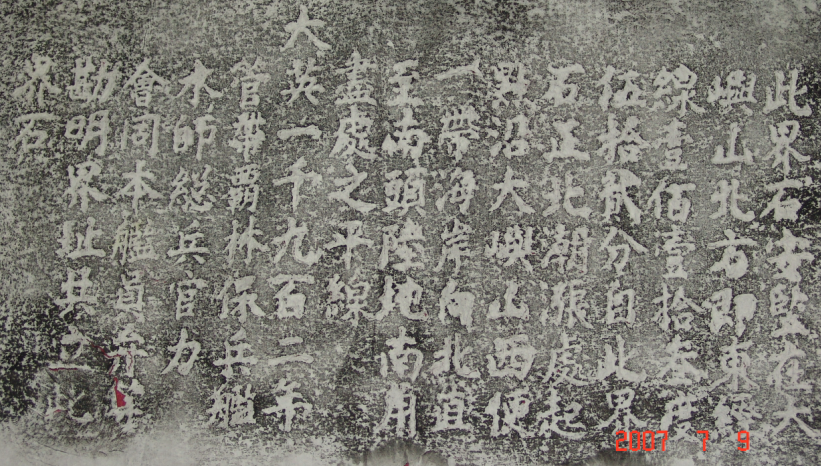 此界石安竪在大
嶼山北方即東經
線壹佰壹拾叁度
伍拾貳分自此界
石正北潮漲處起
點沿大嶼山西便
一帶海岸向北直
至南頭陸地南角
盡處之平線
大英一千九百二年
管帶霸林保兵艦
水師総兵官力
會同本艦員弁等
勘明界址共立此
界石
2007 7 9